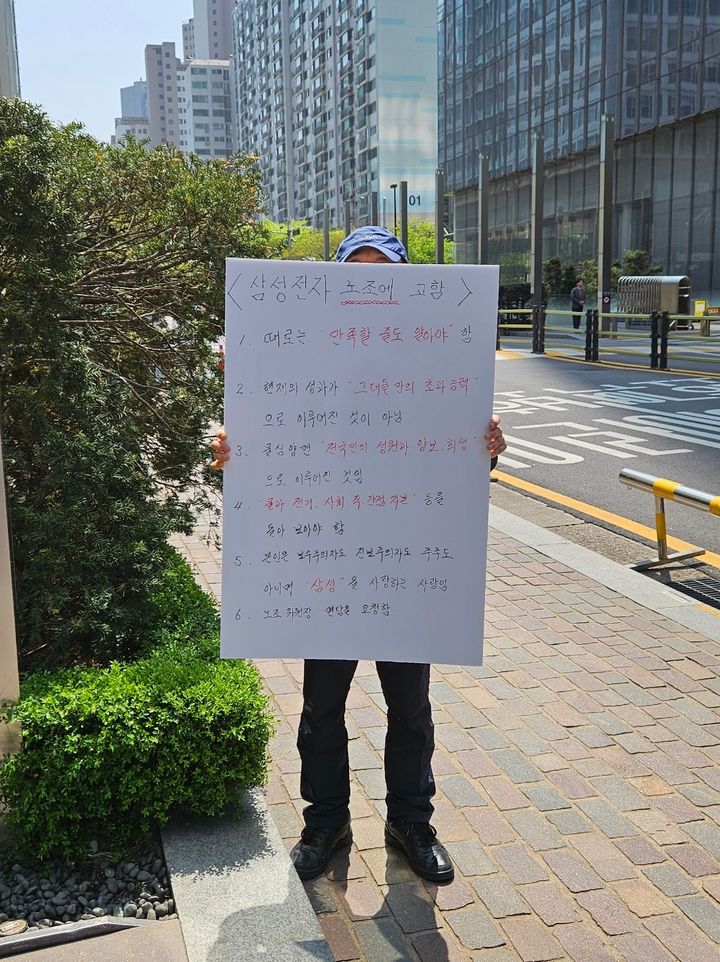 < 삼성전자 노조에 고함 >
1. 때로는 "만족할 줄도 알아야" 함
2. 현재의 성과가 "그대들만의 초과능력"
으로 이루어진 것이 아님
3. 음심양면 "전국민의 성원과 양보.희생"
으로 이루어진 것임
4. "물과 전기. 사회 적.간접 자본" 등을
돌아 보아야 함
5. 본인은 보수주의자도 진보주의자도 주주도
아니며 "삼성"을 사랑하는 사람임
6. 노조 위원장 면담을 요청함.
01